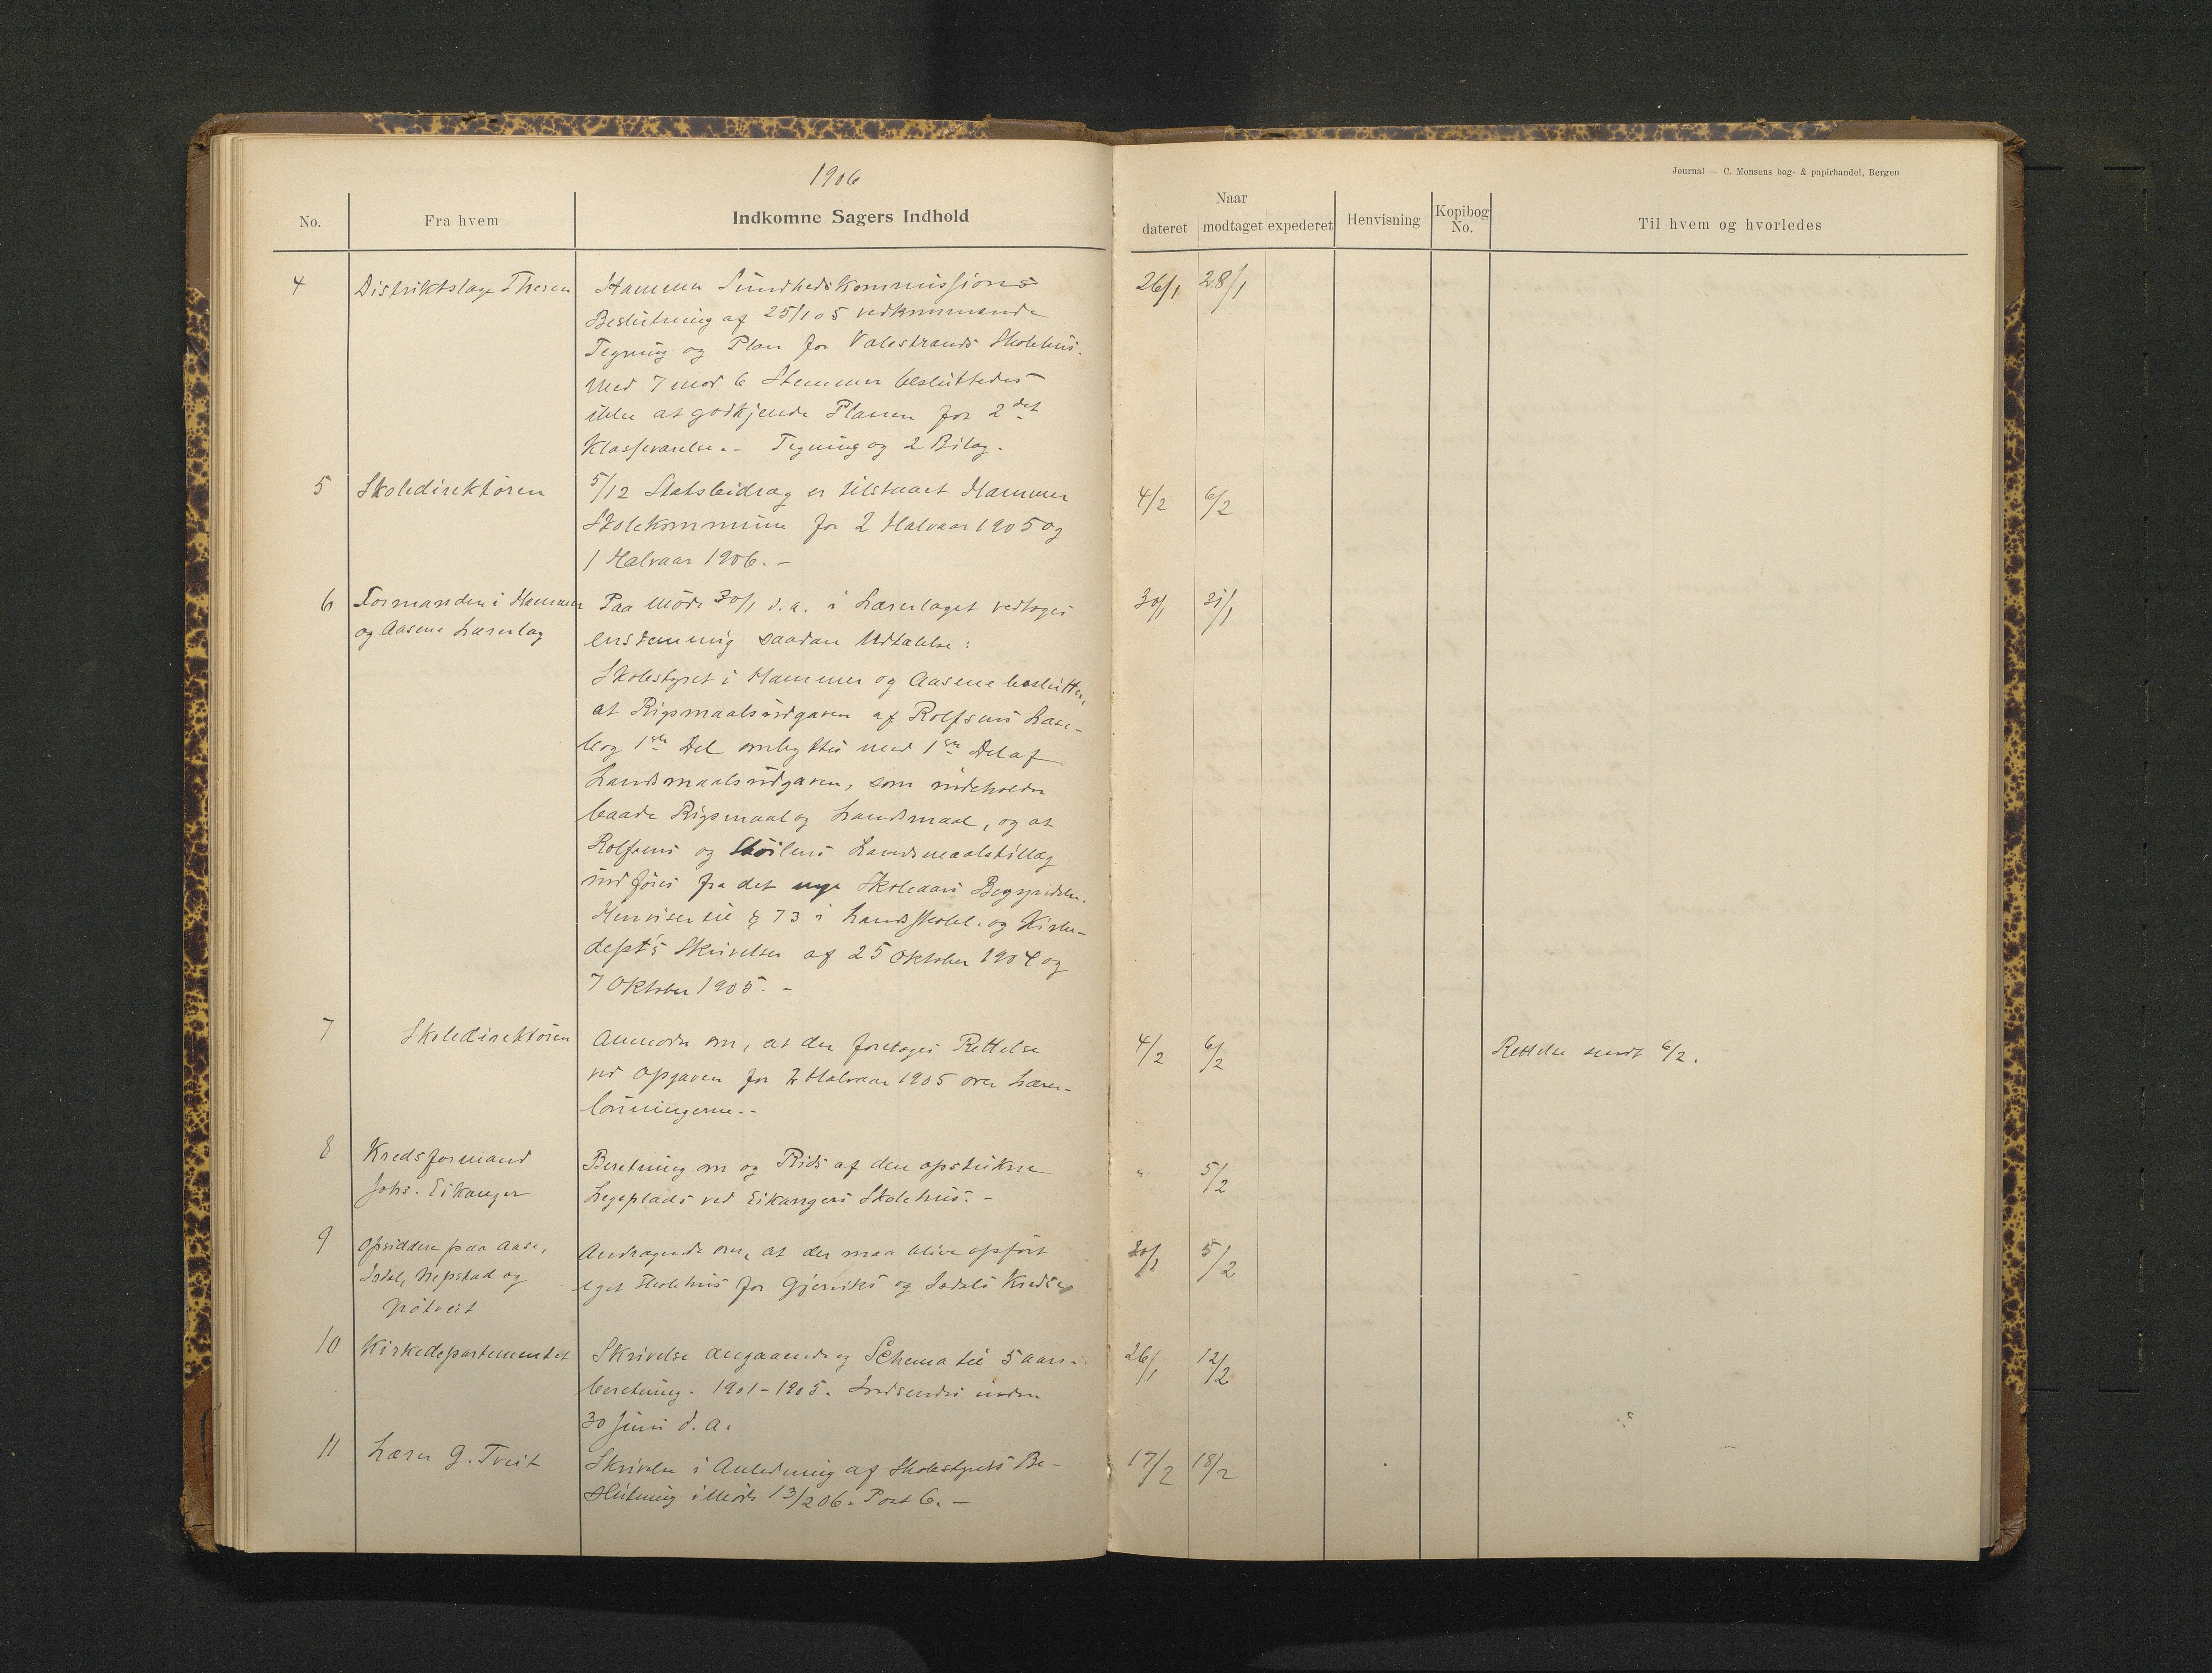 1906
Journal — C. Monsens bog- & papirhandel, Bergen
No. Fra hvem Indkomne Sagers Indhold Naar dateret modtaget expederet Henvisning Kopibog No. Til hvem og hvorledes
4 Distriktslæge Thesen Hammer Sundhedskommissions 26/1 28/1
Beslutning af 25/1 05 vedkommende
Tegning og Plan for Valestrands Skolehus.
Med 7 mod 6 Stemmer besluttedes
ikke at godkjende Planen for 2det
Klasseværelse. - Tegning og 2 Bilag.
5 Skoledirektøren 5/12 Statsbidrag er tilstaaet Hammer 4/2 6/2
Skolekommune for 2 Halvaar 1905 og
1 Halvaar 1906. -
6 Formanden i Hammer Paa Møde 30/1 d. a. i Lærerlaget vedtoges 30/1 31/1
og Aasene Lærerlag enstemmig saadan Udtalelse:
Skolestyret i Hammer og Aasene beslutter,
at Rigsmaalsudgaven af Rolfsens Læse-
bog 1ste Del ombyttes med 1ste Del af
Landsmaalsudgaven, som indeholder
baade Rigsmaal og Landsmaal, og at
Rolfsens og Sköilens Landsmaalstillæg
indføres fra det nye Skoleaars Begyndelse.
Henviser til § 73 i Landsskolel. og Kirke-
dept's Skrivelser af 25 Oktober 1904 og
7 Oktober 1905. -
7 Skoledirektøren Anmoder om, at der foretages Rettelse 4/2 6/2 Rettelse sendt 6/2.
ved Opgaven for 2 Halvaar 1905 over Lærer-
lønningerne. -
8 Kredsformand Beretning om og Rids af den opstukne " 5/2
Johs. Eikanger Legeplads ved Eikangers Skolehus. -
9 Opsiddere paa Aase, Andragende om, at der maa blive opført 5/2
Isdal, Nepstad og eget Skolehus for Gjerviks og Isdals Kredse
Nøtveit
10 Kirkedepartementet Skrivelse angaaende og Schema til 5 aars- 26/1 12/2
beretning. 1901-1905. Indsendes inden
30 Juni d. a.
11 Lærer G. Tveit Skrivelse i Anledning af Skolestyrets Be- 17/2 18/2
slutning i Møde 13/2 06. Post 6. -